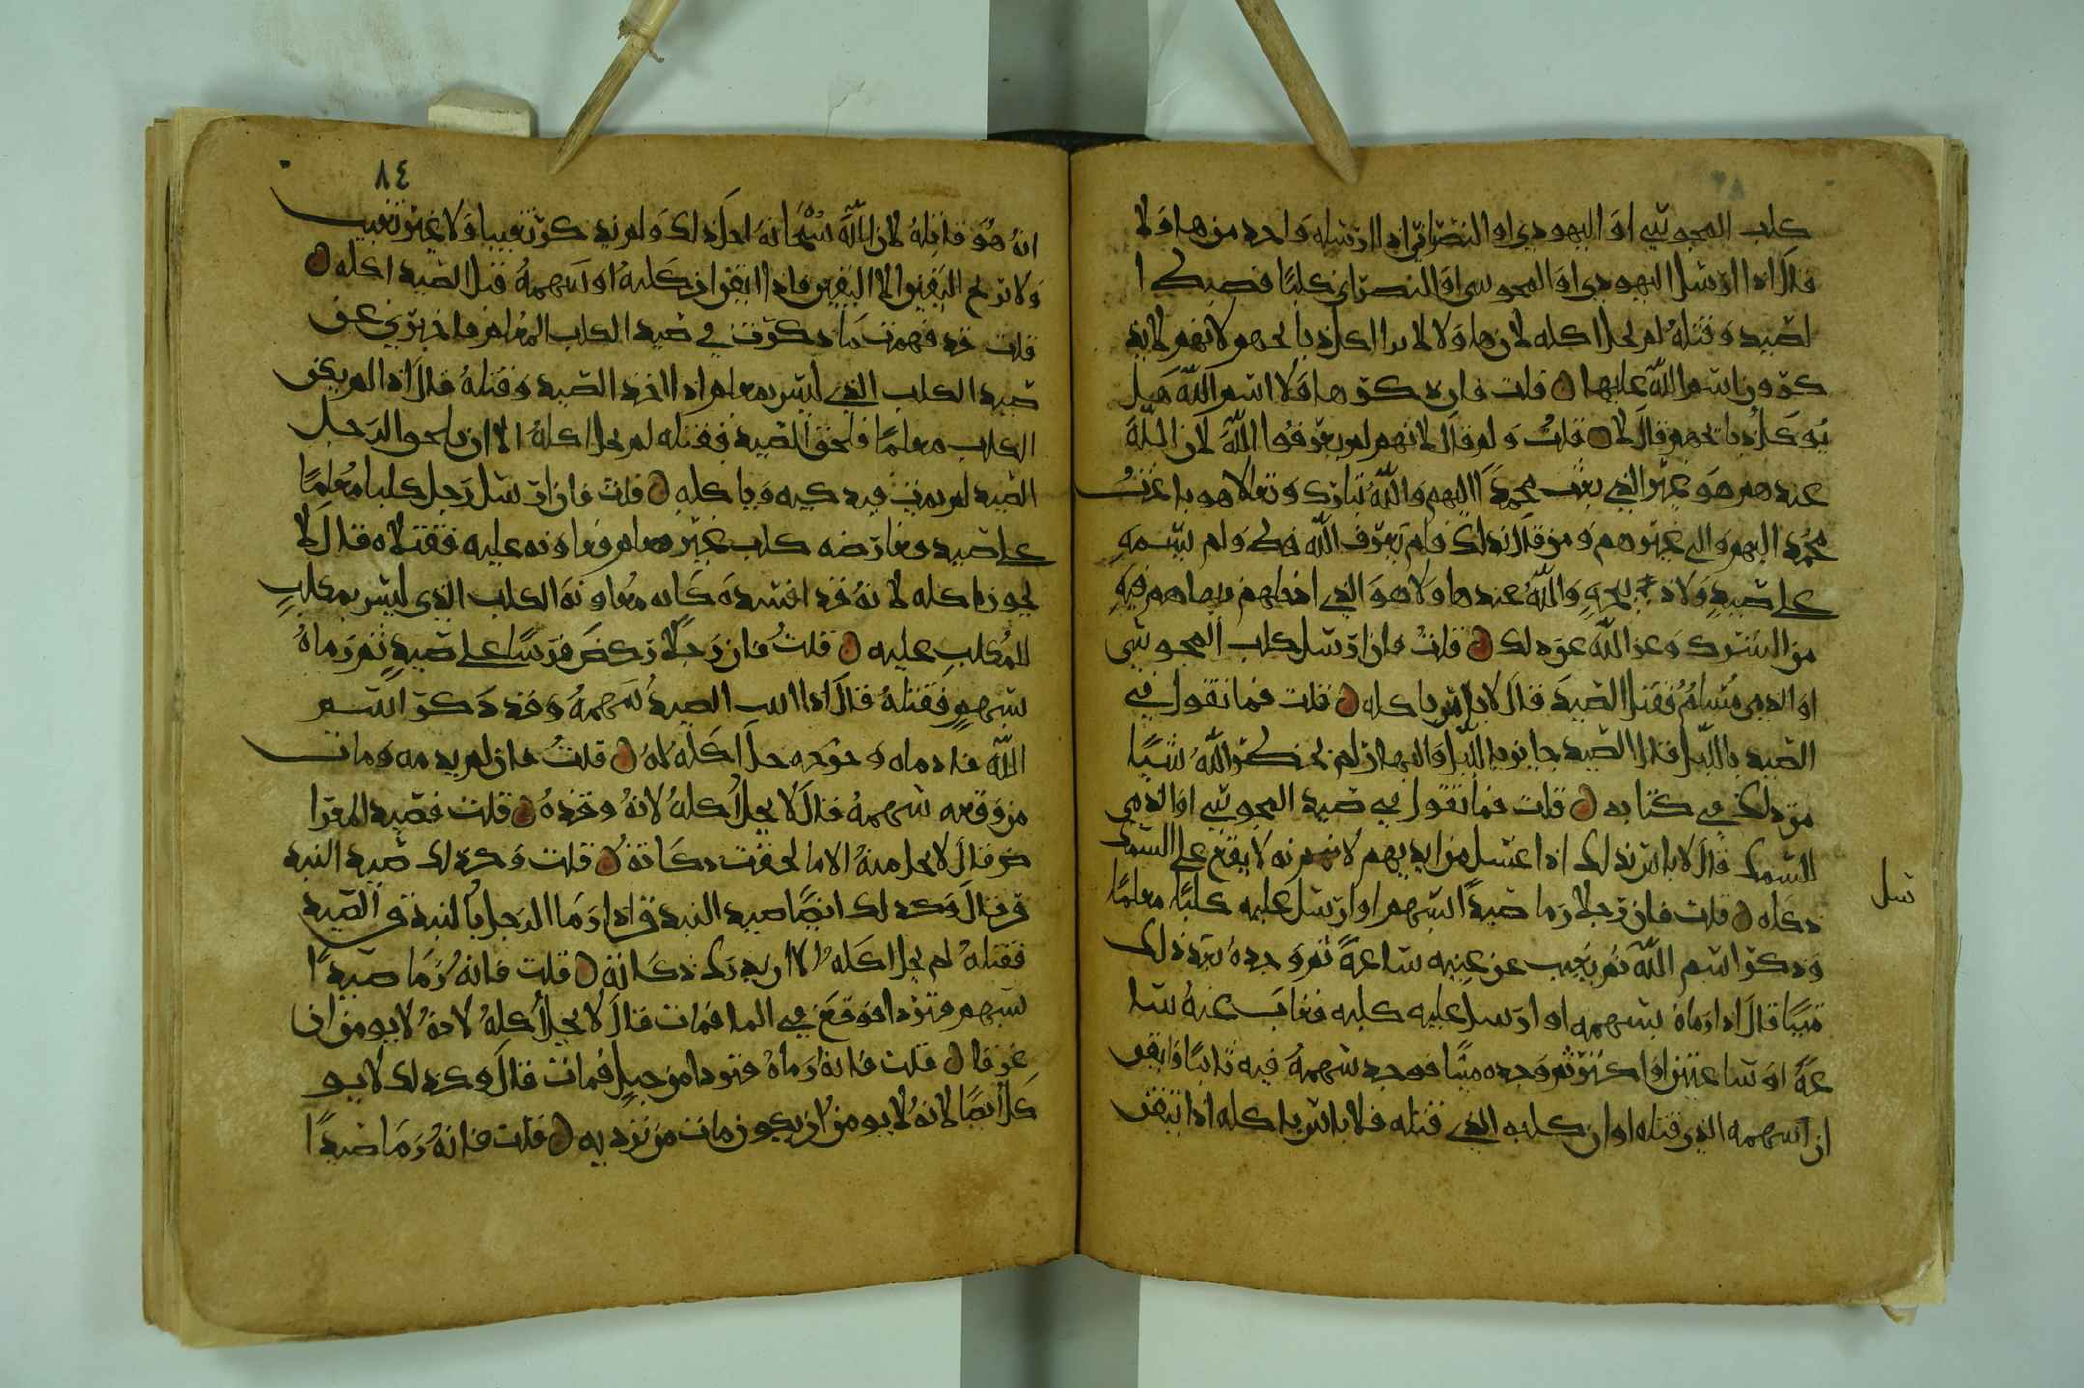 كلب المجوسي او اليهودي او النصراني اذا ارسله واحد من هاولا
قال اذا ارسل اليهودي او المجوسي او النصراني كلبا فصيد ا
لصيد وقتله لم يحل اكله لان هاولا لا يدا اكل ذبايحهم لانهم لا يذ
كرون اسم الله عليها قلت فان ذكر هاولا اسم الله هل
يوكل ذبايحهم قال لا قلت ولم قال لانهم لم يعرفوا الله لان الله
عندهم هو غير الذي بعث محمدا اليهم والله تبارك وتعالا هو باعث
محمد اليهم والى غيرهم ومن قال ذلك فلم يعرف الله قط ولم يسمه
على صيد ولا ذبيحة والله عند هاولا هو الذي ادخلهم فيما هم فيه
من الشرك وعز الله عن ذلك قلت فان ارسل كلب المجوسي
او الذمي مسلم فقتل الصيد قال لا باس باكله قلت فما تقول في
الصيد بالليل قال الصيد جايز بالليل والنهار لم يحظر الله شيا
من ذلك في كتابه قلت فما تقول في صيد المجوسي او الذمي
للسمك قال لا باس بذلك اذا غسل من ايديهم لانه لا يقع على السمك
ذكاه قلت فان رجلا رما صيدا بسهم او ارسل عليه كلبا معلما
وذكر اسم الله ثم يغيب عن عينيه ساعة ثم وجده بعد ذلك
ميتا قال اذا رماه بسهمه او ارسل عليه كلبه فغاب عنه سا
عة او ساعتين او اكثر ثم وجده ميتا فوجد سهمه فيه ثابتا فايقن
ان سهمه الذي قتله او ان كلبه الذي قتله فلا باس باكله اذا تيقن
سل
٨٤
انه هو قاتله لان الله سبحانه احل ذلك ولم يذكر تغيبا ولا غير تغيب
ولا نرجع اليقين الا اليقين فاذا ايقن ان كلبه او سهمه قتل الصيد اكله
قلت قد فهمت ما ذكرت في صيد الكلب المعلم فاخبرني عن
صيد الكلب الذي ليس بمعلم اذا اخذ الصيد وقتله قال اذا لم يكن
الكلب معلما فلحق الصيد فقتله لم يحل اكله الا ان يلحق الرجل
الصيد لم يمت فيذكيه وياكله قلت فان ارسل رجل كلبا معلما
على صيد وعارضه كلب غير معلم فعاونه عليه فقتلاه قال لا
يجوز اكله لانه قد افسده كانه معاونة الكلب الذي ليس بمعلم
للمكلب عليه قلت فان رجلا ركض فرسا على صيد ثم رماه
بسهم فقتله قال اذا الصيد سهمه وقد ذكر اسم
الله فادماه وجرحه حل اكله له قلت فان لم يدمه ومات
من وقعه سهمه قال لا يحل اكله لانه وقذه قلت فصيد المعرا
ض قال لا يحل منه الا ما لحقت ذكاته قلت وكذلك صيد البند
ق قال وكذلك ايضا صيد البندق اذا رما الرجل بالبندق الصيد
فقتله لم يحل اكله الا ان يدرك ذكاته قلت فانه رما صيدا
بسهم فتردا فوقع في الما فمات قال لا يحل اكله لانه لا يومن ان
غرقا قلت فانه رماه فتردا من جبل فمات قال وكذلك لا يو
كل ايضا لانه لا يومن ان يكون مات من ترديه قلت فانه رما صيدا